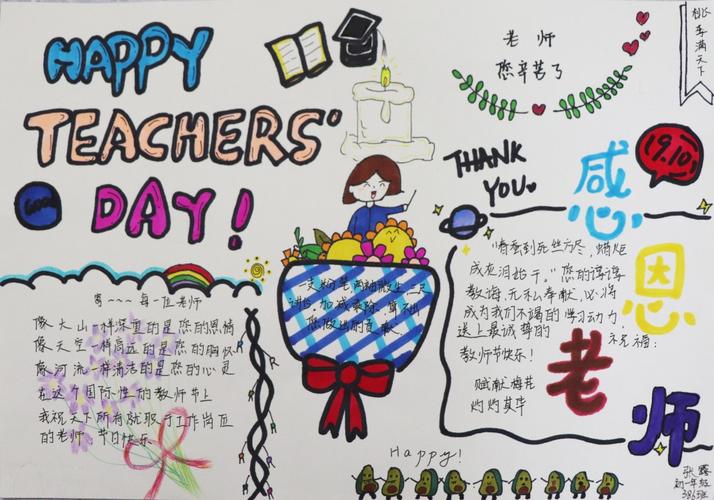 HAPPY
TEACHERS'
DAY!
Good
老师
您辛苦了
桃李满天下
THANK
YOU
19.10
感
恩
老
师
寄~~~每一位老师
像大山一样深重的是您的恩情
像天空一样高远的是您的胸怀
像河流一样清洁的是您的心灵
在这个国际性的教师节上
我祝天下所有就职于工作岗位
的老师 节日快乐
一支粉笔两袖微尘 三尺
讲台 加减乘除 算不出
您做出的贡献
"春蚕到死丝方尽,蜡炬
成灰泪始干。"您的谆谆
教诲,无私奉献,必将
成为我们不竭的学习动力,
送上最诚挚的 祝福:
教师节快乐!
灼灼其华
Happy!
张露
初一年级
386班